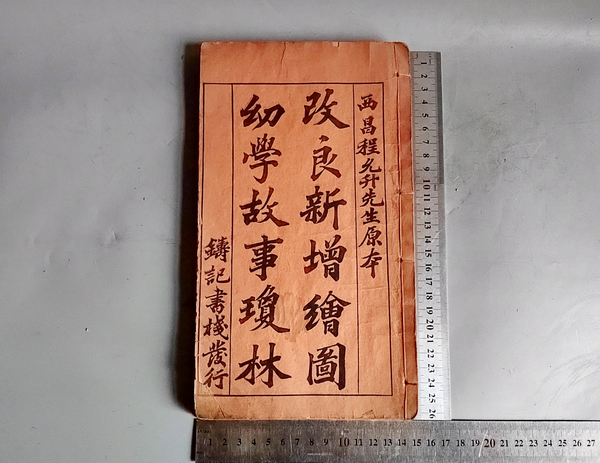 西昌程允升先生原本
改良新增繪圖
幼學故事瓊林
鑄記書棧發行
1 2 3 4 5 6 7 8 9 10 11 12 13 14 15 16 17 18 19 20 21 22 23 24 25 26
1 2 3 4 5 6 7 8 9 10 11 12 13 14 15 16 17 18 19 20 21 22 23 24 25 26 27